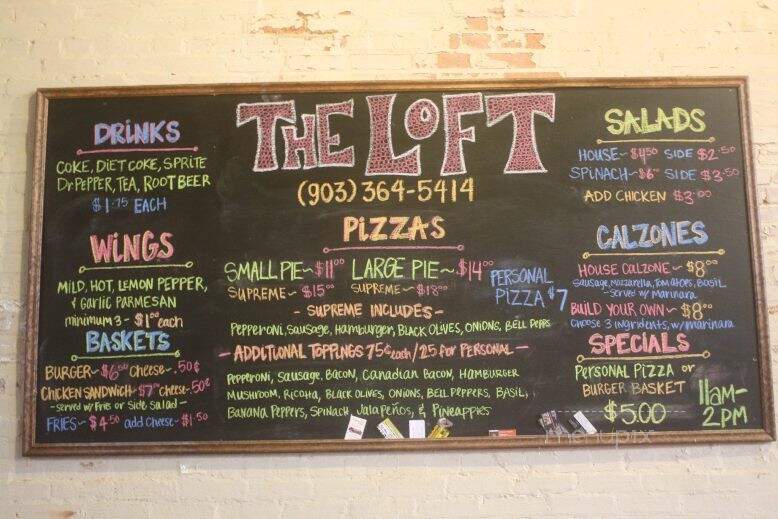 THE LOFT
(903) 364-5414
DRINKS
COKE, DIET COKE, SPRITE
Dr PEPPER, TEA, ROOT BEER
$1.75 EACH
WINGS
MILD, HOT, LEMON PEPPER,
& Garlic PARMESAN
minimum 3 - $1.00 each
BASKETS
BURGER ~ $6.50 Cheese ~ .50¢
CHICKEN SANDWICH ~ $7.00 cheese ~ .50¢
- served w/ Fries or Side Salad -
FRIES ~ $4.50 add cheese ~ $1.50
PIZZAS
SMALL PIE ~ $11.00 LARGE PIE ~ $14.00
SUPREME ~ $15.00 SUPREME ~ $18.00
PERSONAL
PIZZA $7
- SUPREME INCLUDES -
Pepperoni, Sausage, Hamburger, BLACK OLIVES, ONIONS, BELL PEPPS
- ADDITIONAL TOPPINGS 75¢ each / 25 for PERSONAL -
Pepperoni, Sausage, BACON, Canadian Bacon, HAMBURGER
MUSHROOM, RICOTTA, BLACK OLIVES, ONIONS, BELL PEPPERS, BASIL,
BANANA PEPPERS, SPINACH, Jalapeños, & PINEAPPLES
SALADS
HOUSE ~ $4.50 SIDE $2.50
SPINACH ~ $6.00 SIDE $3.50
ADD CHICKEN $3.00
CALZONES
HOUSE CALZONE ~ $8.00
Sausage, Mozzarella, Tomatoes, BASIL
- served w/ marinara
BUILD YOUR OWN ~ $8.00
choose 3 ingridents, w/ marinara
SPECIALS
PERSONAL PIZZA or
BURGER BASKET
$5.00
11am-
2PM
menupix